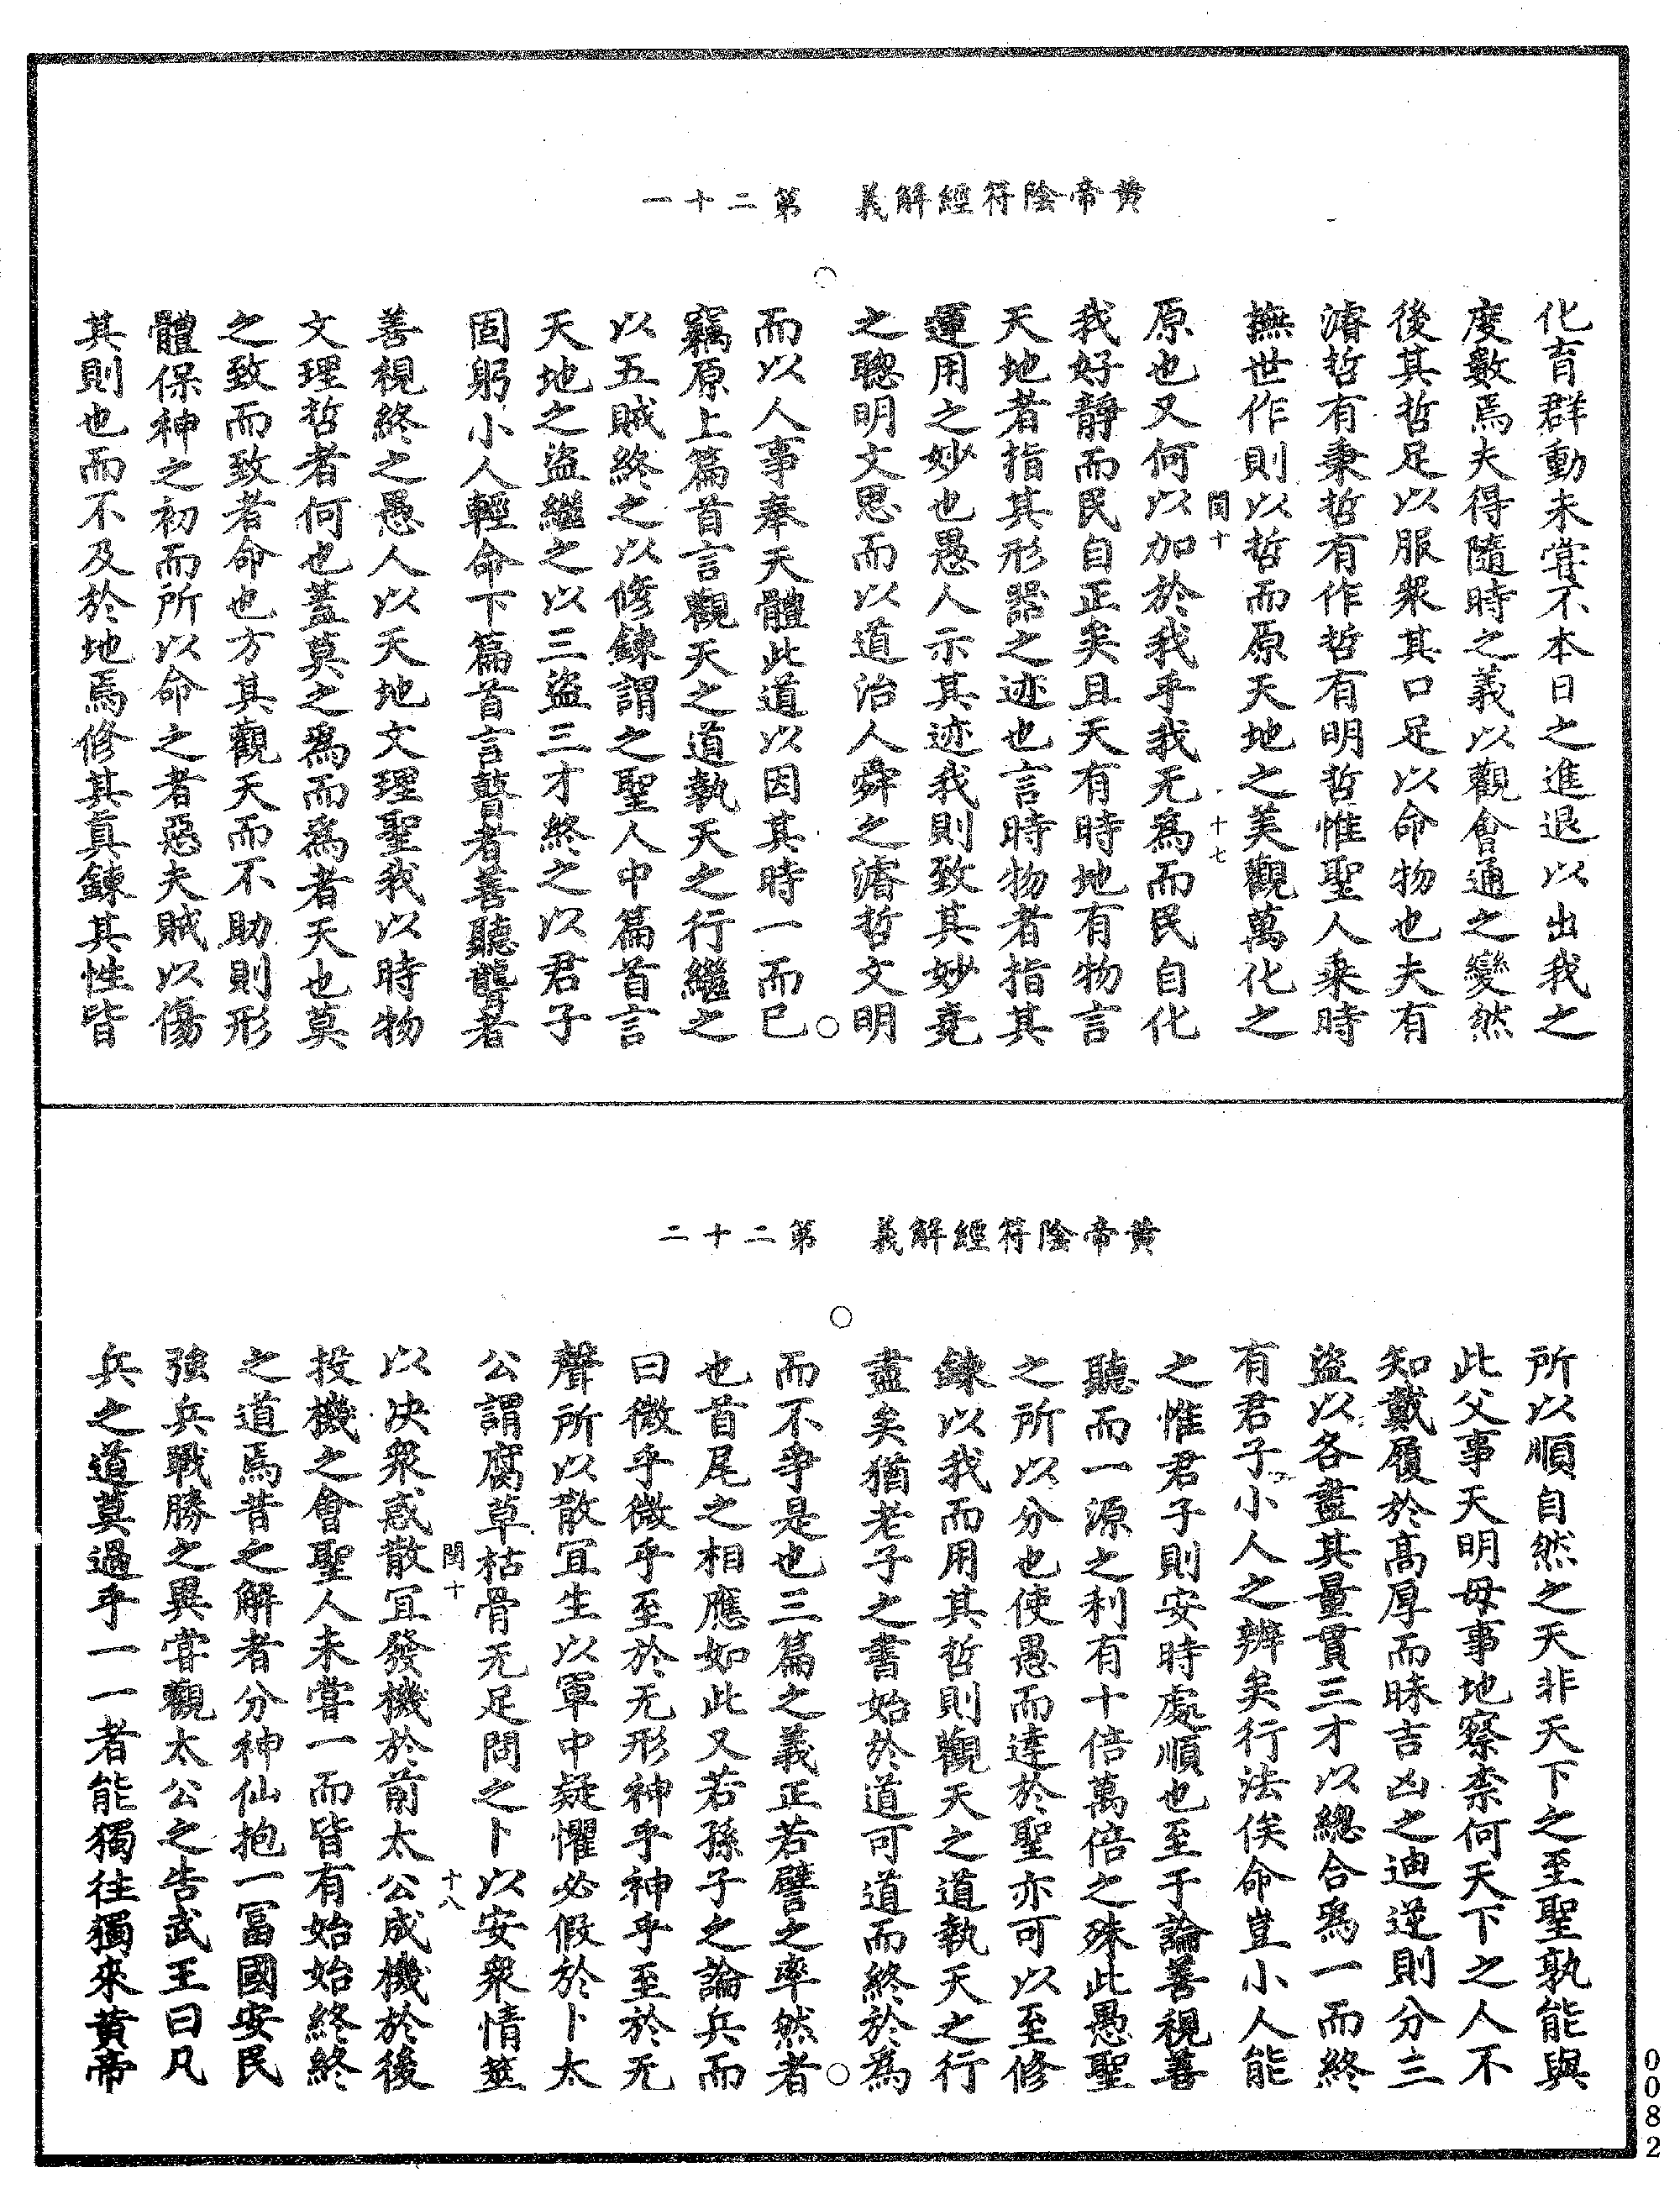 黄帝陰符經解義　第二十一
化育群動未嘗不本日之進退以出我之
度數焉夫得隨時之義以觀會通之變然
後其哲足以服衆其口足以命物也夫有
濬哲有秉哲有作哲有明哲惟聖人乘時
撫世作則以哲而原天地之美觀萬化之
閏十　十七
原也又何以加於我乎我无爲而民自化
我好靜而民自正矣且天有時地有物言
天地者指其形器之迹也言時物者指其
運用之妙也愚人示其迹我則致其妙堯
之聰明文思而以道治人舜之濬哲文明
而以人事奉天體此道以因其時一而已
竊原上篇首言觀天之道執天之行繼之
以五賊終之以修鍊謂之聖人中篇首言
天地之盜繼之以三盜三才終之以君子
固躬小人輕命下篇首言瞽者善聽聾者
善視終之愚人以天地文理聖我以時物
文理哲者何也蓋莫之爲而爲者天也莫
之致而致者命也方其觀天而不助則形
體保神之初而所以命之者惡夫賊以傷
其則也而不及於地焉修其真鍊其性皆
黄帝陰符經解義　第二十二
所以順自然之天非天下之至聖孰能與
此父事天明母事地察柰何天下之人不
知戴履於高厚而昧吉凶之迪逆則分三
盜以各盡其量貫三才以總合爲一而終
有君子小人之辨矣行法俟命豈小人能
之惟君子則安時處順也至于論善視善
聽而一源之利有十倍萬倍之殊此愚聖
之所以分也使愚而達於聖亦可以至修
鍊以我而用其哲則觀天之道執天之行
盡矣猶老子之書始於道可道而終於為
而不爭是也三篇之義正若譬之率然者
也首尾之相應如此又若孫子之論兵而
曰微乎微乎至於无形神乎神乎至於无
聲所以散宜生以軍中疑懼必假於卜太
公謂腐草枯骨无足問之卜以安衆情筮
閏十　十八
以決衆惑散宜發機於前太公成機於後
投機之會聖人未嘗一而皆有始始終終
之道焉昔之解者分神仙抱一冨國安民
強兵戰勝之異甞觀太公之告武王曰凡
兵之道莫過乎一一者能獨往獨來黄帝
0082